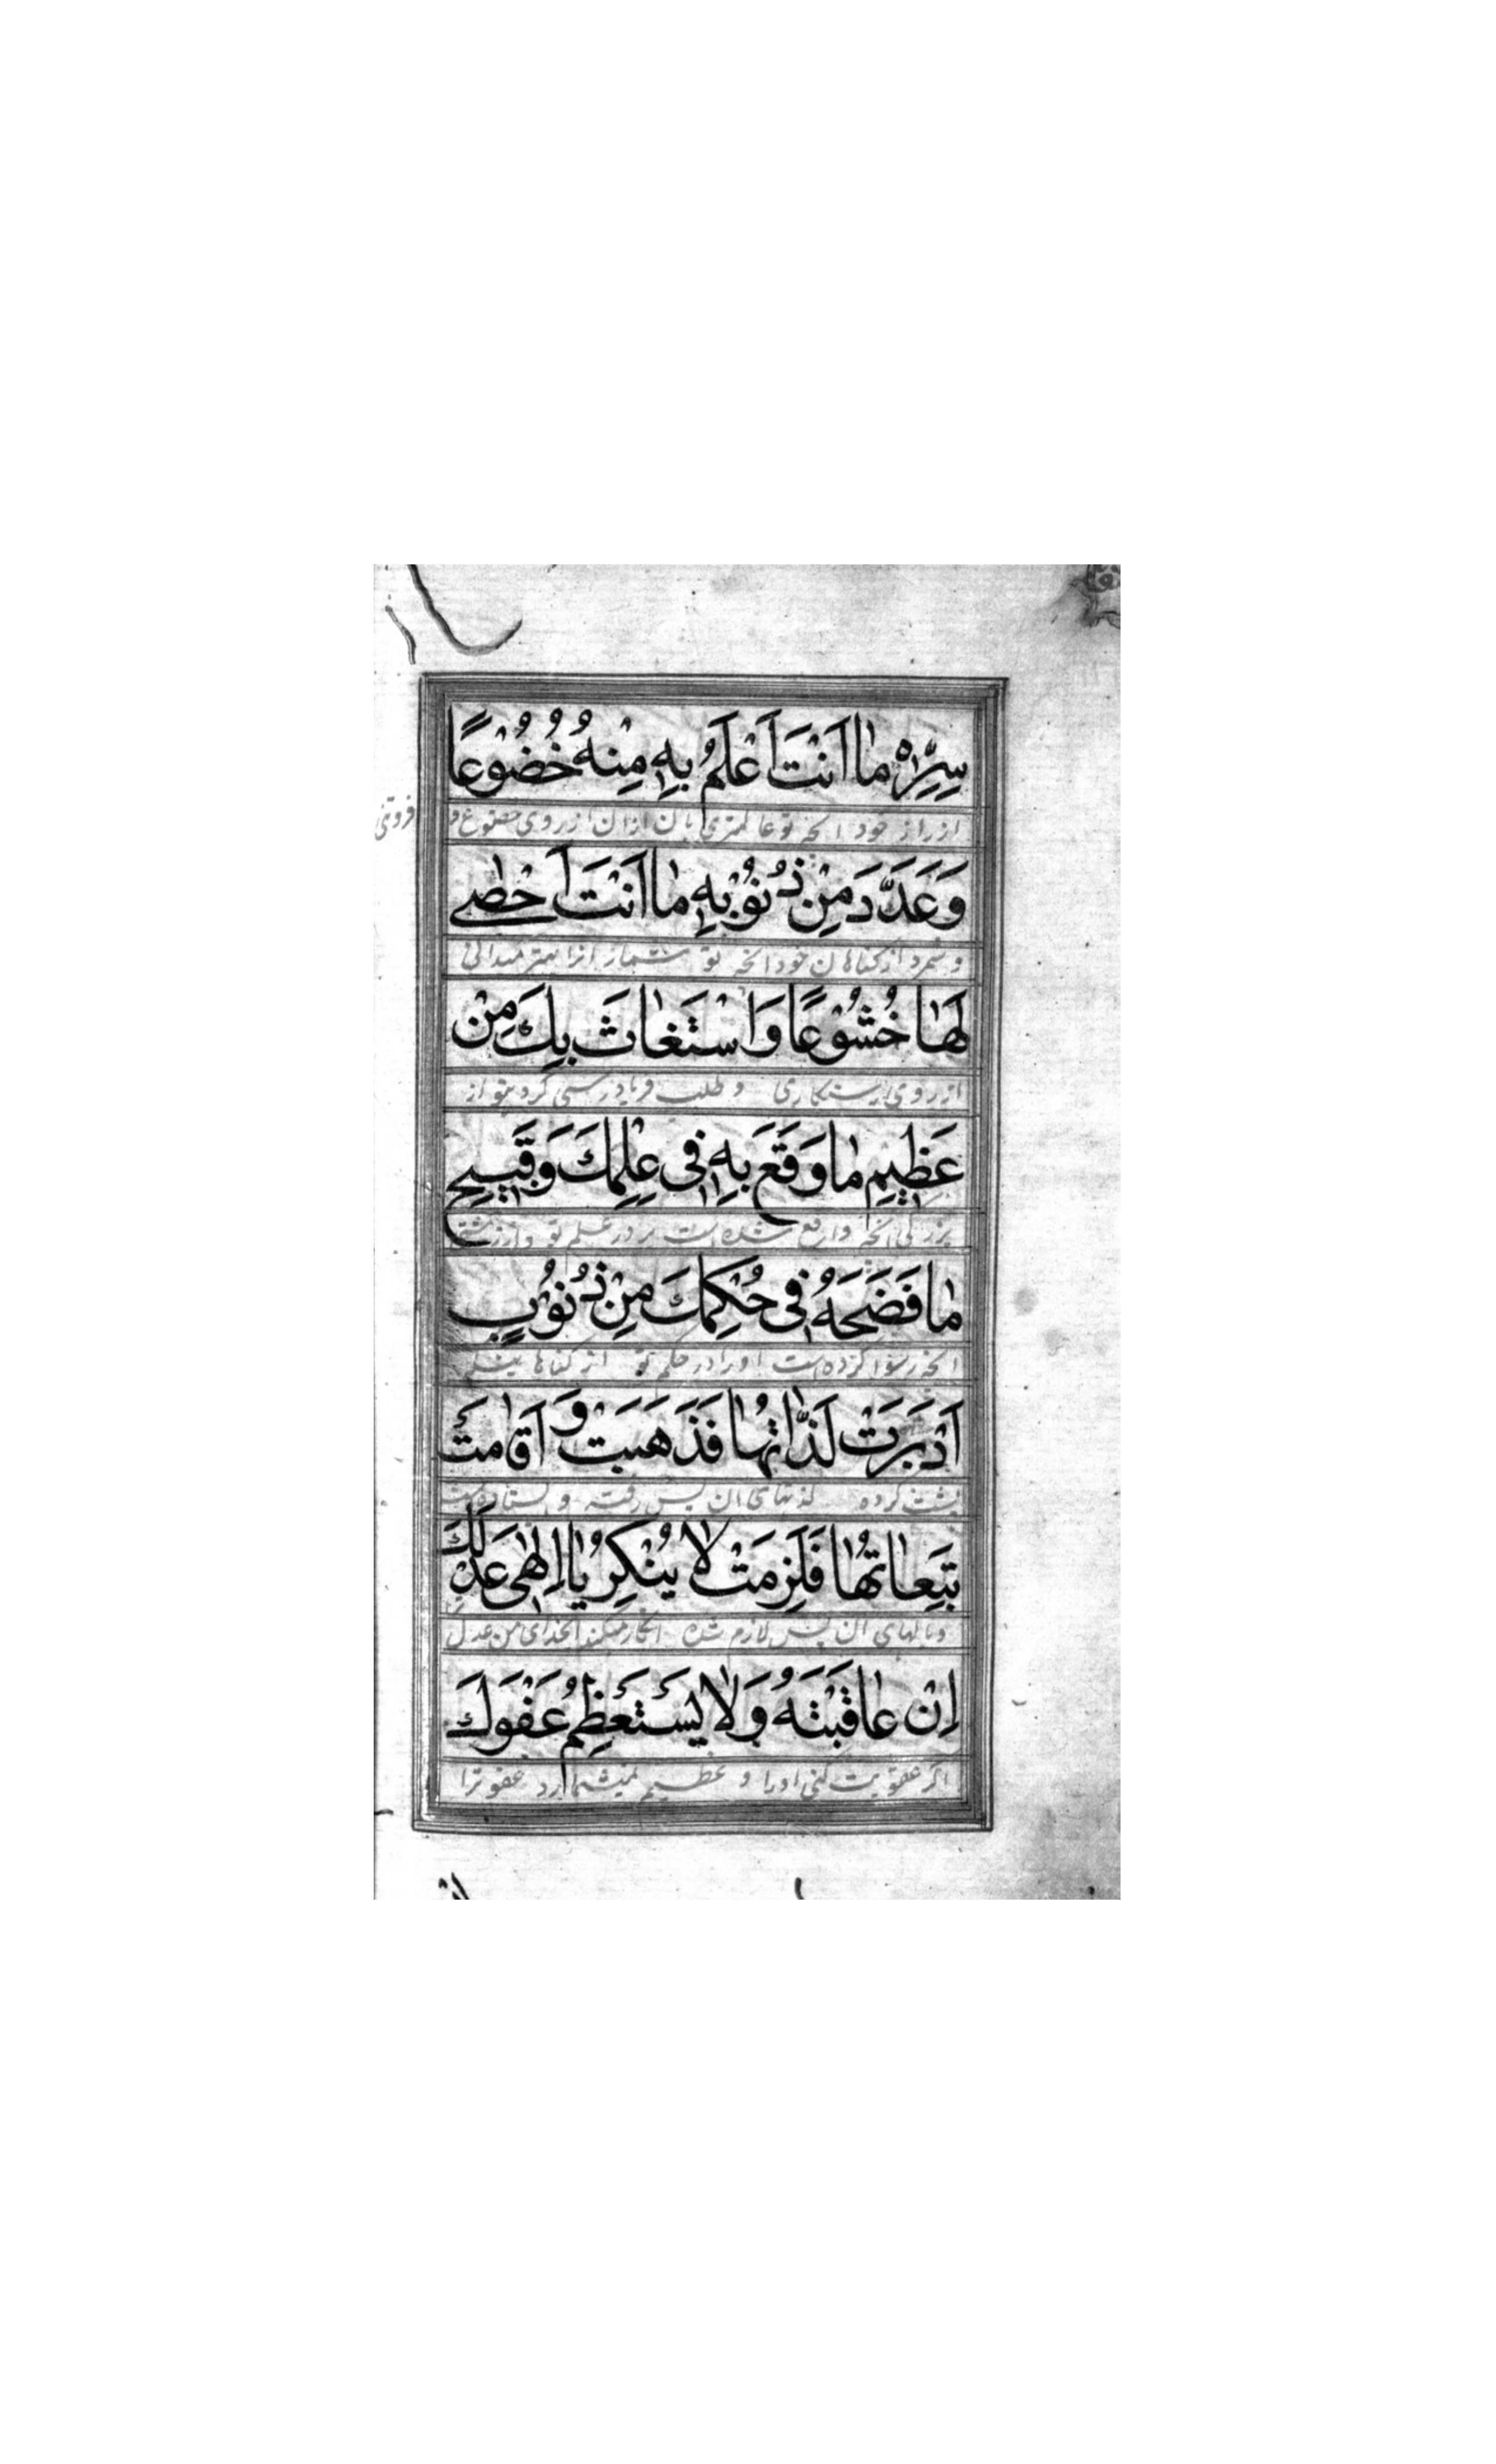 سِرِّهٖ مٰا اَنْتَ اَعْلَمُ بِهٖ مِنْهُ خُضُوْعًا
از راز خود انچه تو عالمتری بان ازان از روی خضوع و فروتنی
وَعَدَّدَ مِنْ ذُنُوْبِهٖ مٰا اَنْتَ اَحْصٰے
و شمرد از کناهان خود انچه تو شمار انرا بهتر میدانی
لَهٰا خُشُوْعًا وَاسْتَغٰاثَ بِكَ مِنْ
از روی ترستکاری و طلب فریادرسی کرد بتو از
عَظِيْمِ مٰا وَقَعَ بِهٖ فِي عِلْمِكَ وَقَبِيْحِ
بزرکی انچه واقع شده است بر در علم تو و از زشتی
مٰا فَضَحَهُ فِي حُكْمِكَ مِنْ ذُنُوْبٍ
انچه رسوا کرده است او را در حکم تو از کناهانیکه
اَدْبَرَتْ لَذّٰاتُهٰا فَذَهَبَتْ وَ اَقٰامَتْ
پشت کرده لذتهای ان پس رفته و ایستاده است
تَبِعٰاتُهٰا فَلَزِمَتْ لاٰ يُنْكِرُ يٰا اِلٰهٰي عَدْلَكَ
وبالهای ان پس لازم شده انکار نمیکند ایخدای من عدل ترا
اِنْ عٰاقَبْتَهُ وَلاٰ يَسْتَعْظِمُ عَفْوَكَ
اکر عقوبت کنی او را و عظیم نمیشمارد عفو ترا